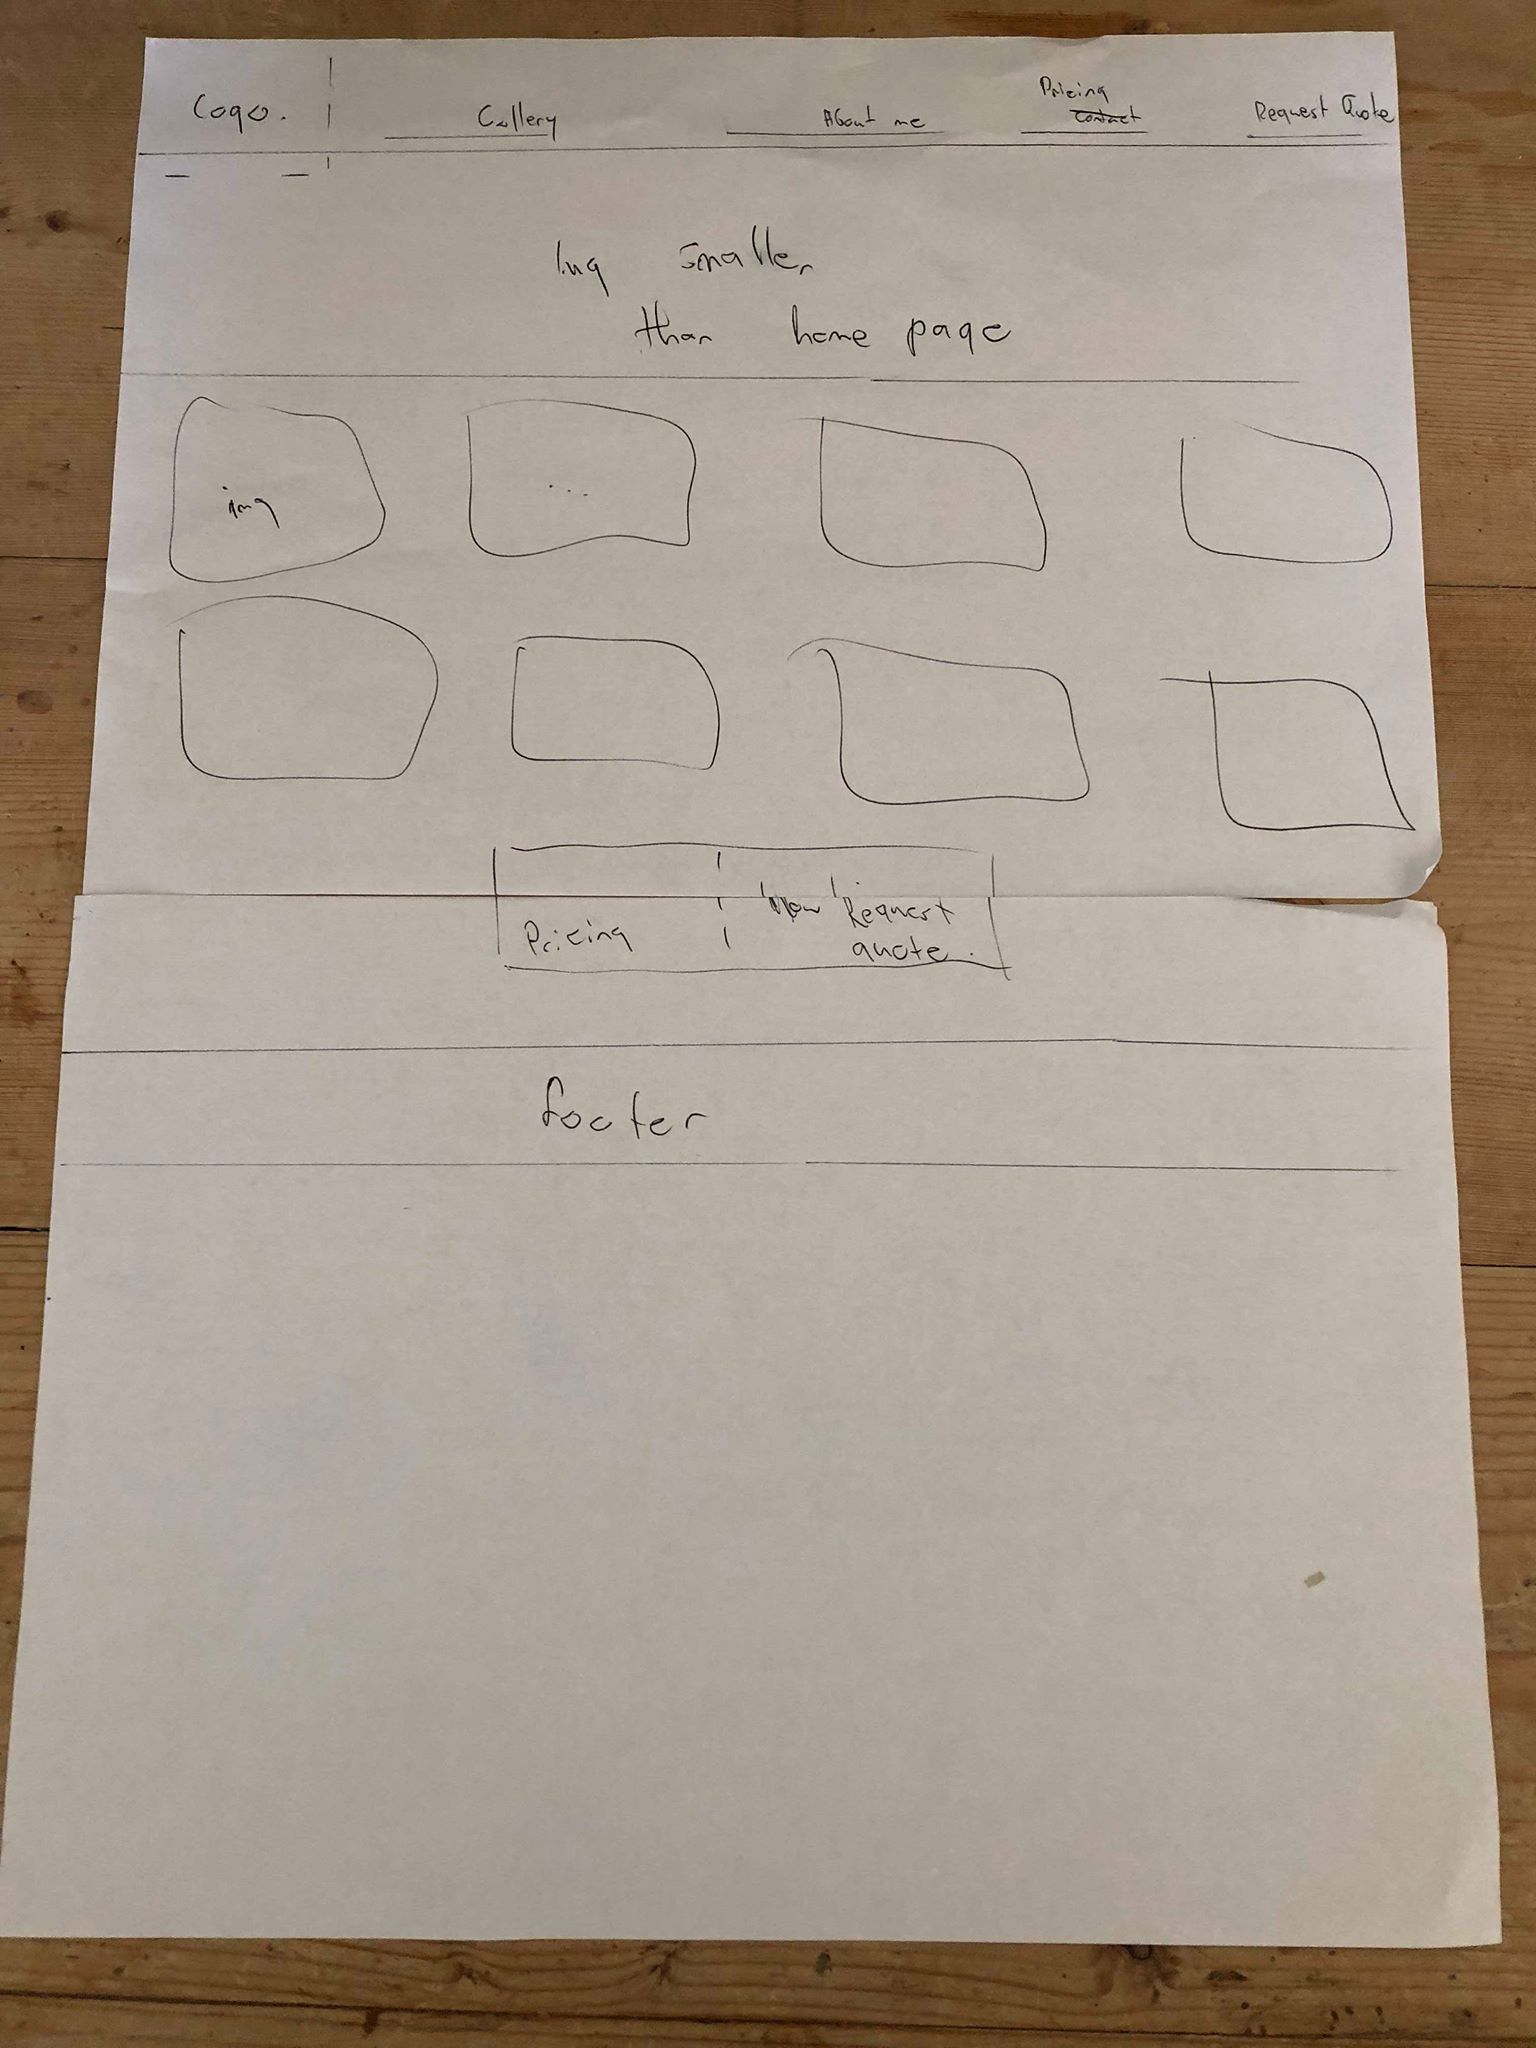 Logo.
Gallery
About me
Pricing
Contact
Request Quote
Img smaller
than home page
img
...
Pricing
Request
quote.
footer